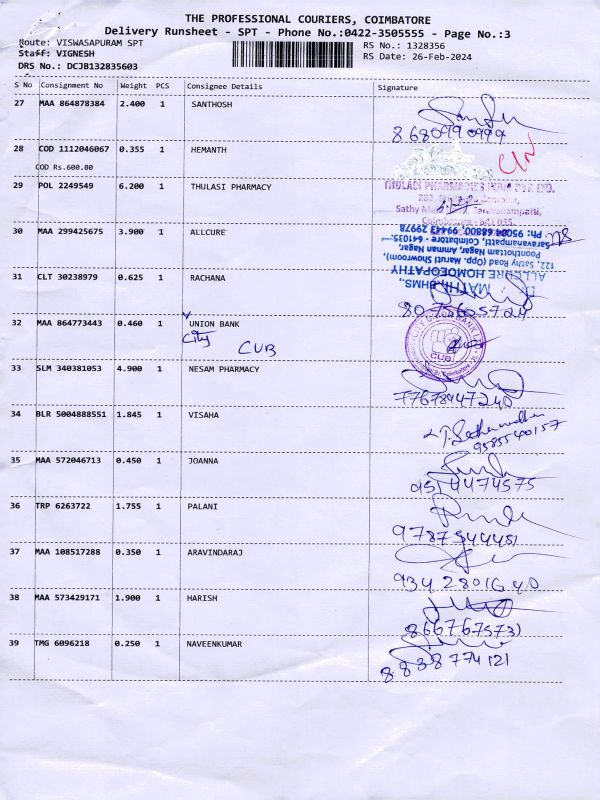 THE PROFESSIONAL COURIERS, COIMBATORE
Delivery Runsheet - SPT - Phone No.:0422-3505555 - Page No.:3
Route: VISWASAPURAM SPT RS No.: 1328356
Staff: VIGNESH RS Date: 26-Feb-2024
DRS No.: DCJB132835603
S No Consignment No Weight PCS Consignee Details Signature
27 MAA 864878384 2.400 1 SANTHOSH
8680990999
28 COD 1112046067 0.355 1 HEMANTH
COD Rs.600.00
29 POL 2249549 6.200 1 THULASI PHARMACY
THULASI PHARMACIES INDIA PVT. LTD.
Coimbatore - 641 035.
30 MAA 299425675 3.900 1 ALLCURE
ALLCURE HOMOEOPATHY
122, Sathy Road (Opp. Maruti Showroom),
Poonthottam Nagar, Amman Nagar,
Saravanampatti, Coimbatore - 641035.
31 CLT 30238979 0.625 1 RACHANA
8075605724
32 MAA 864773443 0.460 1 UNION BANK
City CUB
CUB
33 SLM 340381053 4.900 1 NESAM PHARMACY
34 BLR 5004888551 1.845 1 VISAHA
9585540157
35 MAA 572046713 0.450 1 JOANNA
9514474575
36 TRP 6263722 1.755 1 PALANI
9787544451
37 MAA 108517288 0.350 1 ARAVINDARAJ
9342801640
38 MAA 573429171 1.900 1 HARISH
8667675731
39 TMG 6096218 0.250 1 NAVEENKUMAR
8838774121